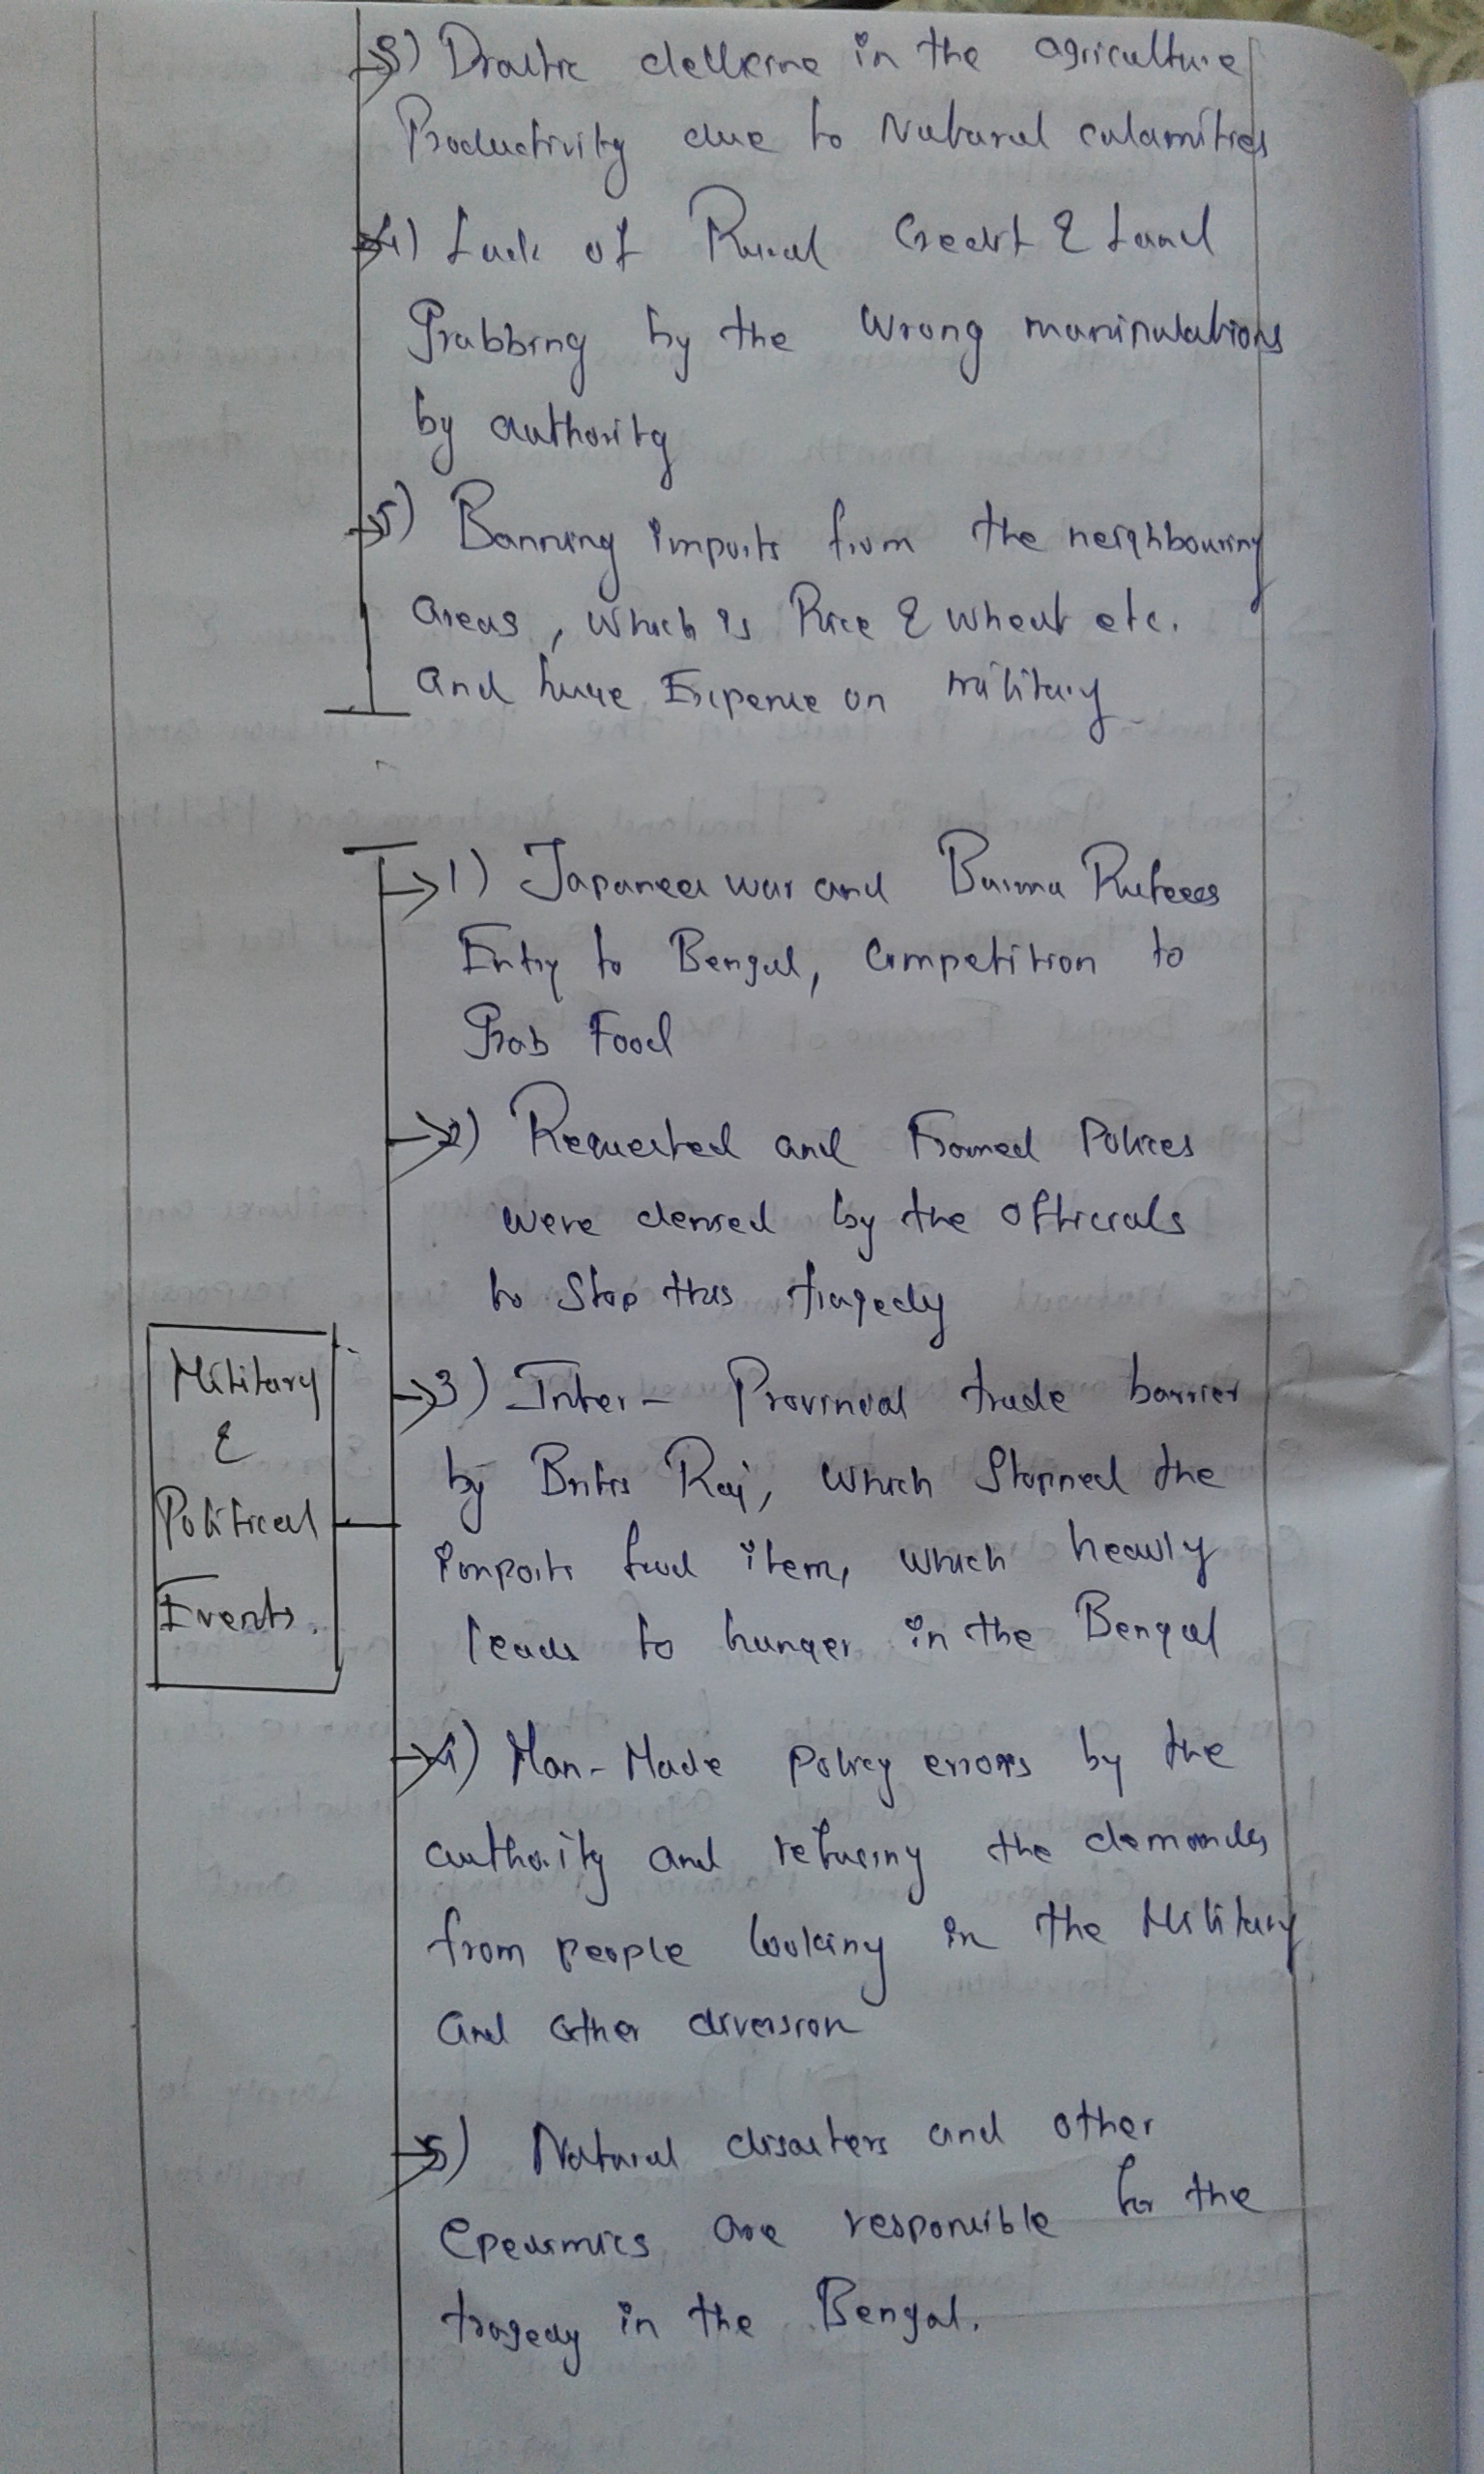 3) Drastic decline in the agriculture
Productivity due to Natural calamities
4) Lack of Rural Credit & Land
Grabbing by the Wrong manipulations
by authority
5) Banning imports from the neighbouring
areas, which is Rice & wheat etc.
and huge Expense on military
1) Japanees war and Burma Rufeees
Entry to Bengal, Competition to
Grab Food
2) Requested and Framed Polices
were denied by the officials
to Stop this tragedy
3) Inter- Provincial trade barrier
by Britis Raj, which Stopped the
imports food item, which heavly
leads to hunger in the Bengal
Military
&
Political
Events.
4) Man-Made policy errors by the
authority and refusing the demands
from people looking in the Military
and other diversion
5) Natural disasters and other
epedimics are responsible for the
tragedy in the Bengal.